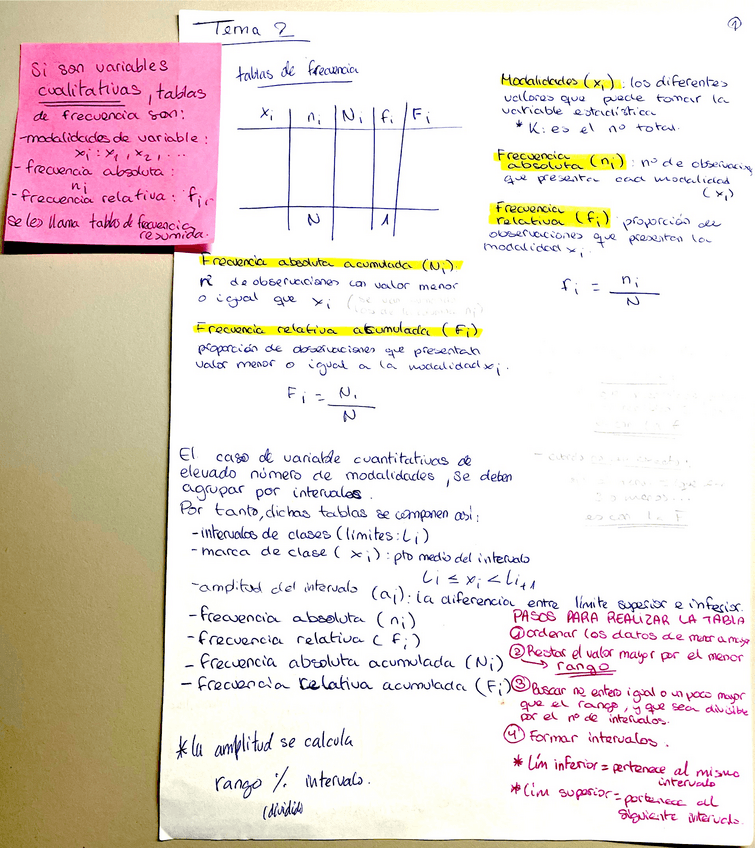 Tema 2
1
Si son variables
cualitativas, tablas
de frecuencia son:
-modalidades de variable:
xi: x1, x2, ...
- frecuencia absoluta:
ni
- frecuencia relativa: fi.
se les llama tabla de frecuencia
resumida.
tablas de frecuencia
xi | ni | Ni | fi | Fi
N 1
Modalidades (xi): los diferentes
valores que puede tomar la
variable estadística
* K: es el nº total.
Frecuencia
absoluta (ni): nº de observacion
que presenta cada modalidad
(xi)
Frecuencia
relativa (fi): proporción de
observaciones que presentan la
modalidad xi.
fi = ni / N
Frecuencia absoluta acumulada (Ni).
nº de observaciones con valor menor
o igual que xi
Frecuencia relativa acumulada (Fi)
proporción de observaciones que presentan
valor menor o igual a la modalidad xi.
Fi = Ni / N
El caso de variable cuantitativas de
elevado número de modalidades, se deben
agrupar por intervalos.
Por tanto, dichas tablas se componen así:
-intervalos de clases (límites: Li)
-marca de clase (xi): pto medio del intervalo
Li ≤ xi < Li+1
-amplitud del intervalo (ai): la diferencia entre límite superior e inferior.
-frecuencia absoluta (ni)
-frecuencia relativa (fi)
- frecuencia absoluta acumulada (Ni)
- frecuencia relativa acumulada (Fi)
*la amplitud se calcula
rango % intervalo.
(dividido)
PASOS PARA REALIZAR LA TABLA
1 ordenar los datos de menor a mayor
2 Restar el valor mayor por el menor
→ rango
3 Buscar nº entero igual o un poco mayor
que el rango, y que sea divisible
por el nº de intervalos.
4 Formar intervalos.
* Lím inferior = pertenece al mismo
intervalo
* Lím superior = pertenece al
siguiente intervalo.